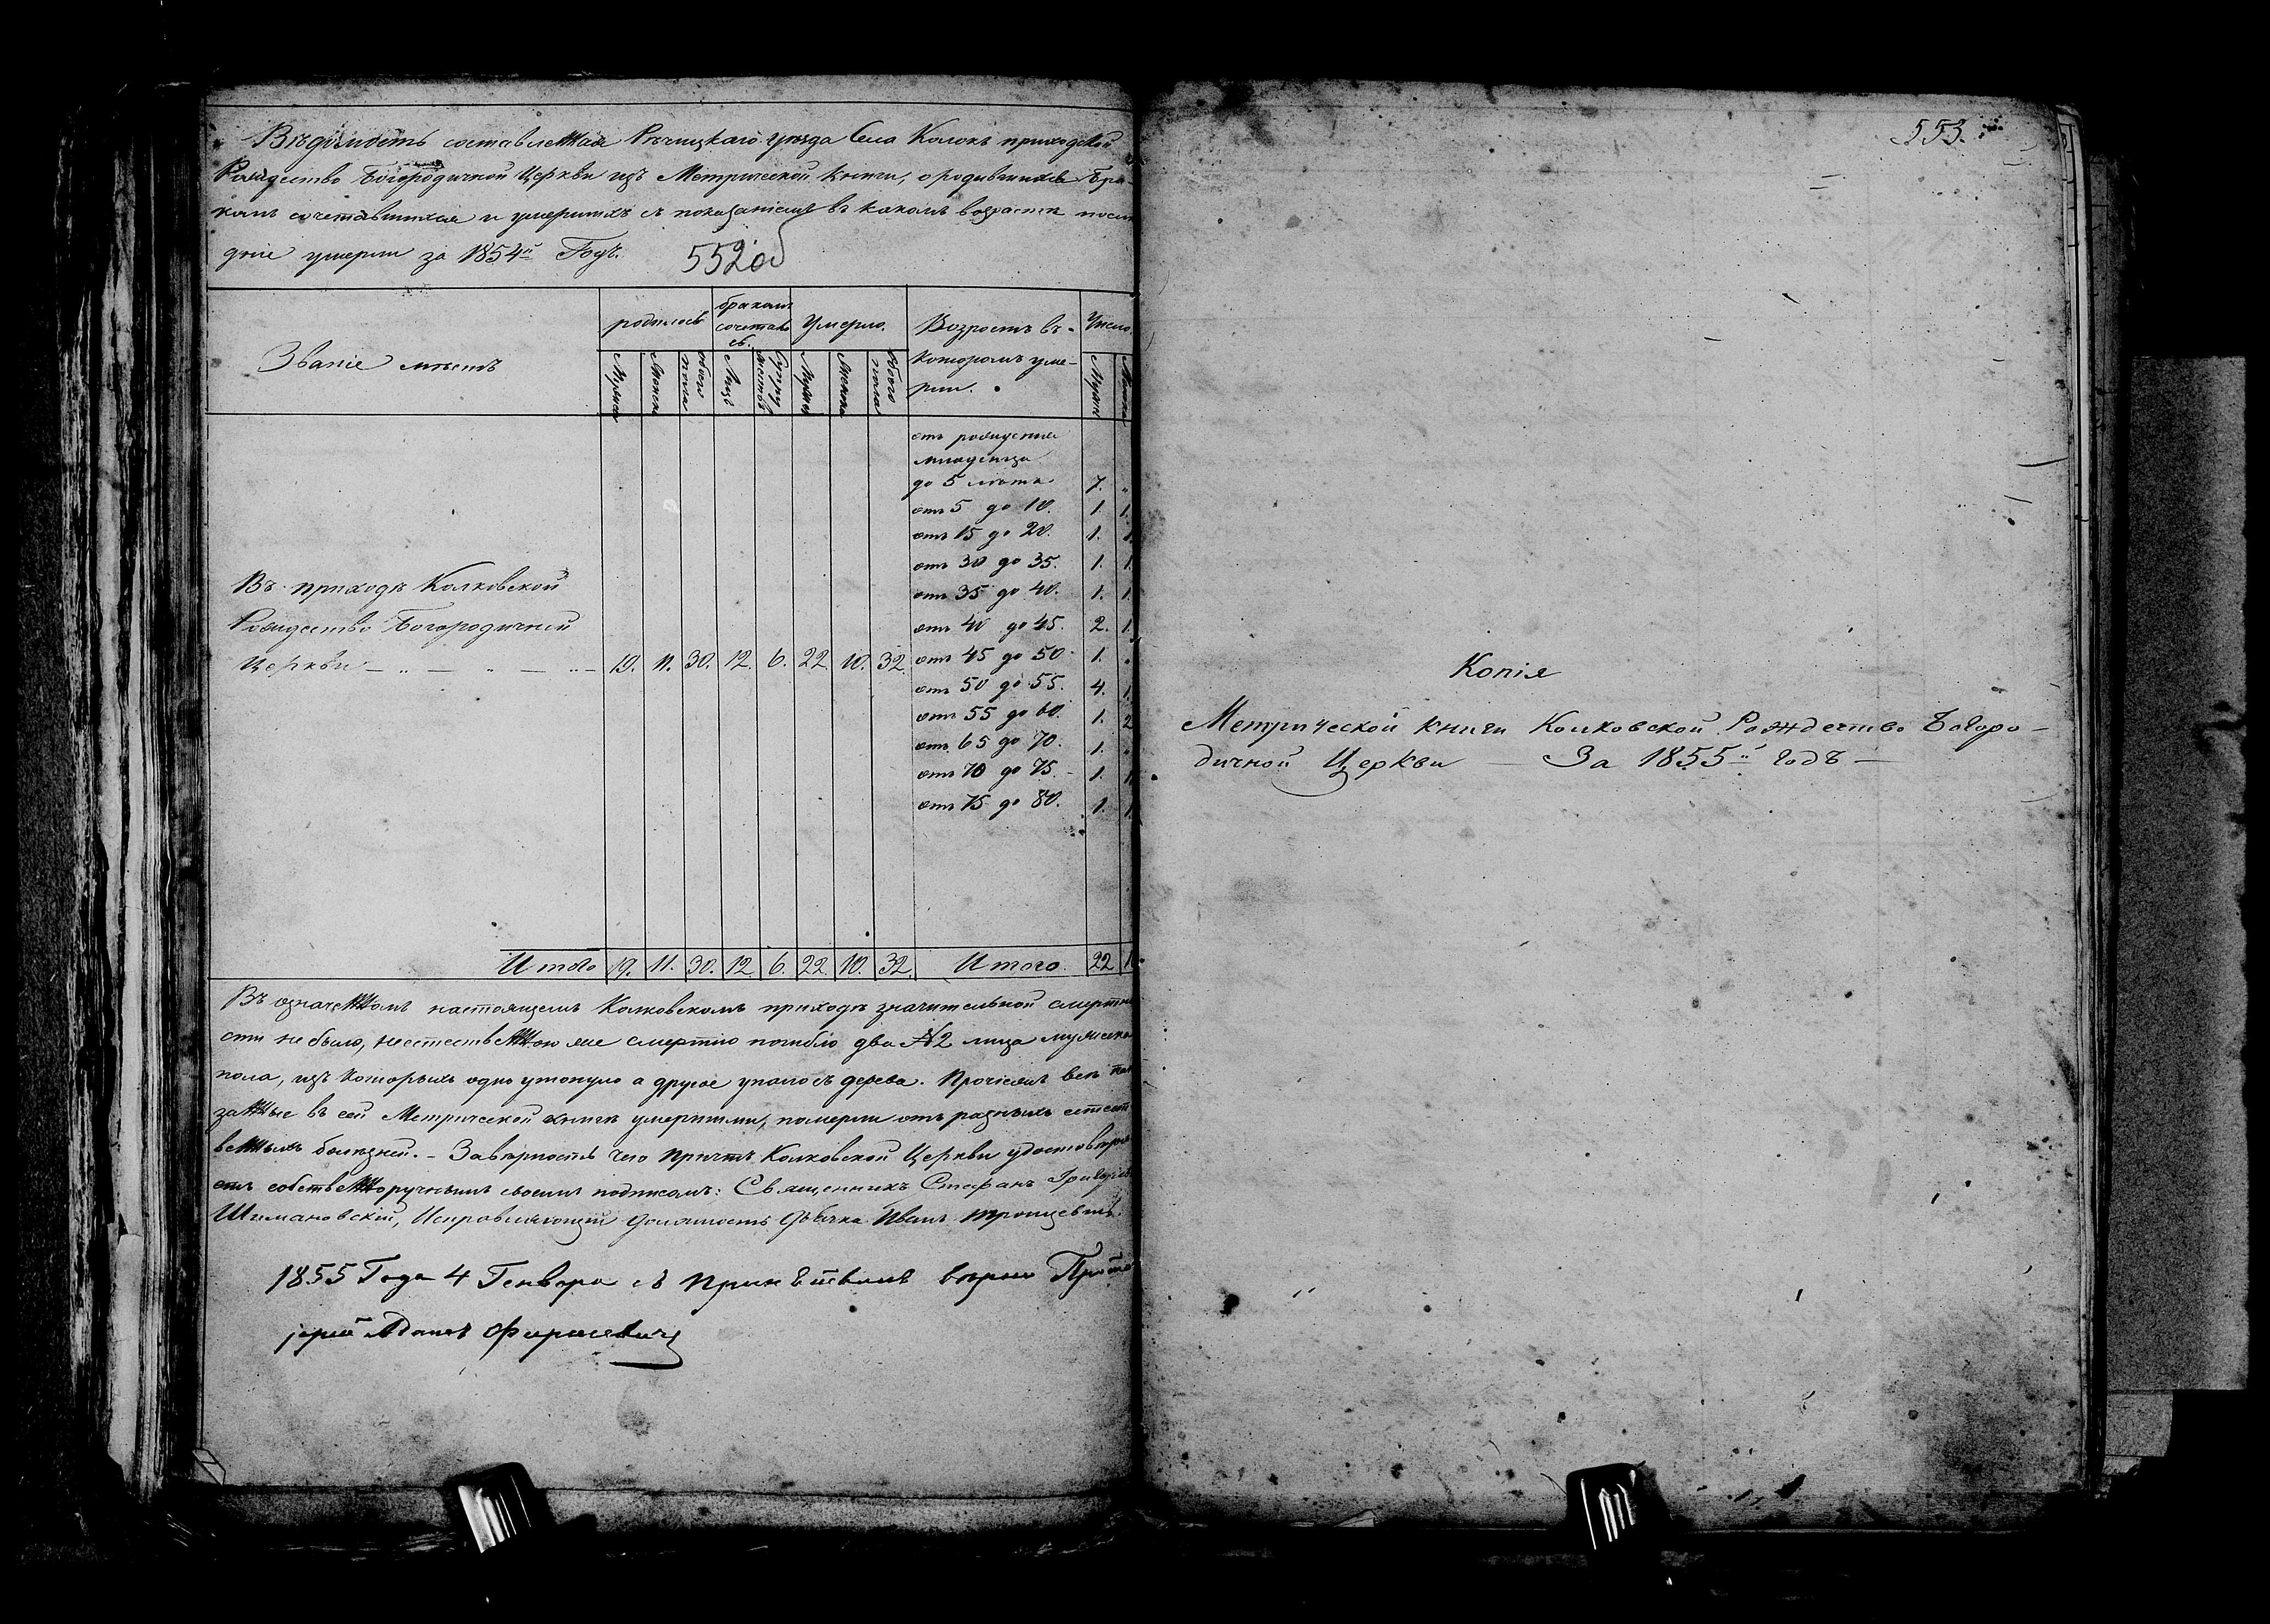 Вѣдомость составленная Рѣчицкаго уѣзда Села Колокъ приходской
Рождество Богородичной Церкви изъ Метрической книги, о родившихся бра-
комъ сочетавшихся и умершихъ съ показаніемъ въ какомъ возрастѣ послѣ
дніе умерли за 1854й Годъ.
552об
Званіе мѣстъ
родилось
бракомъ сочетались.
Умерло.
Возрастъ въ
которомъ уме-
рли.
Число.
Мужска
Женска
обоего пола
Лицъ
Супружествъ
Мужска
Женска
обоего пола
Мужск
Женска
отъ рожденія
младенца
до 5 лѣтъ 7. "
отъ 5 до 10. 1. 1.
отъ 15 до 20. 1. 1.
отъ 30 до 35. 1. 1.
отъ 35 до 40. 1. 1.
отъ 40 до 45. 2. 1.
отъ 45 до 50 1. "
отъ 50 до 55. 4. 1.
отъ 55 до 60. 1. 2
отъ 65 до 70. 1. "
отъ 70 до 75. 1. 1
отъ 75 до 80. 1. 1.
Въ приходѣ Колковской
Рождество Богородичной
Церкви 19. 11. 30. 12. 6. 22 10. 32.
Итого 19. 11. 30. 12 6. 22 10. 32. Итого 22
Въ означенномъ настоящемъ Колковскомъ приходѣ значительной смертно
сти не было, неестественною же смертію погибло два №2 лица мужеска
пола, изъ которыхъ одно утонуло а другое упало съ дерева. Прочіе всѣ пока
занные въ сей Метрической книгѣ умершими, померли отъ разныхъ естест
венныхъ болѣзней. - Завѣрность чего Причтъ Колковской Церкви удостовѣря
етъ собственноручнымъ своимъ подписомъ: Священникъ Стефанъ Григорьевъ
Шимановскій, Исправляющій должность дьячка Иванъ
1855 Года 4 Генваря съ вѣрно Прото
іерей
553.
Копія
Метрической книги Колковской Рождество Богоро-
дичной Церкви — За 1855й годъ —